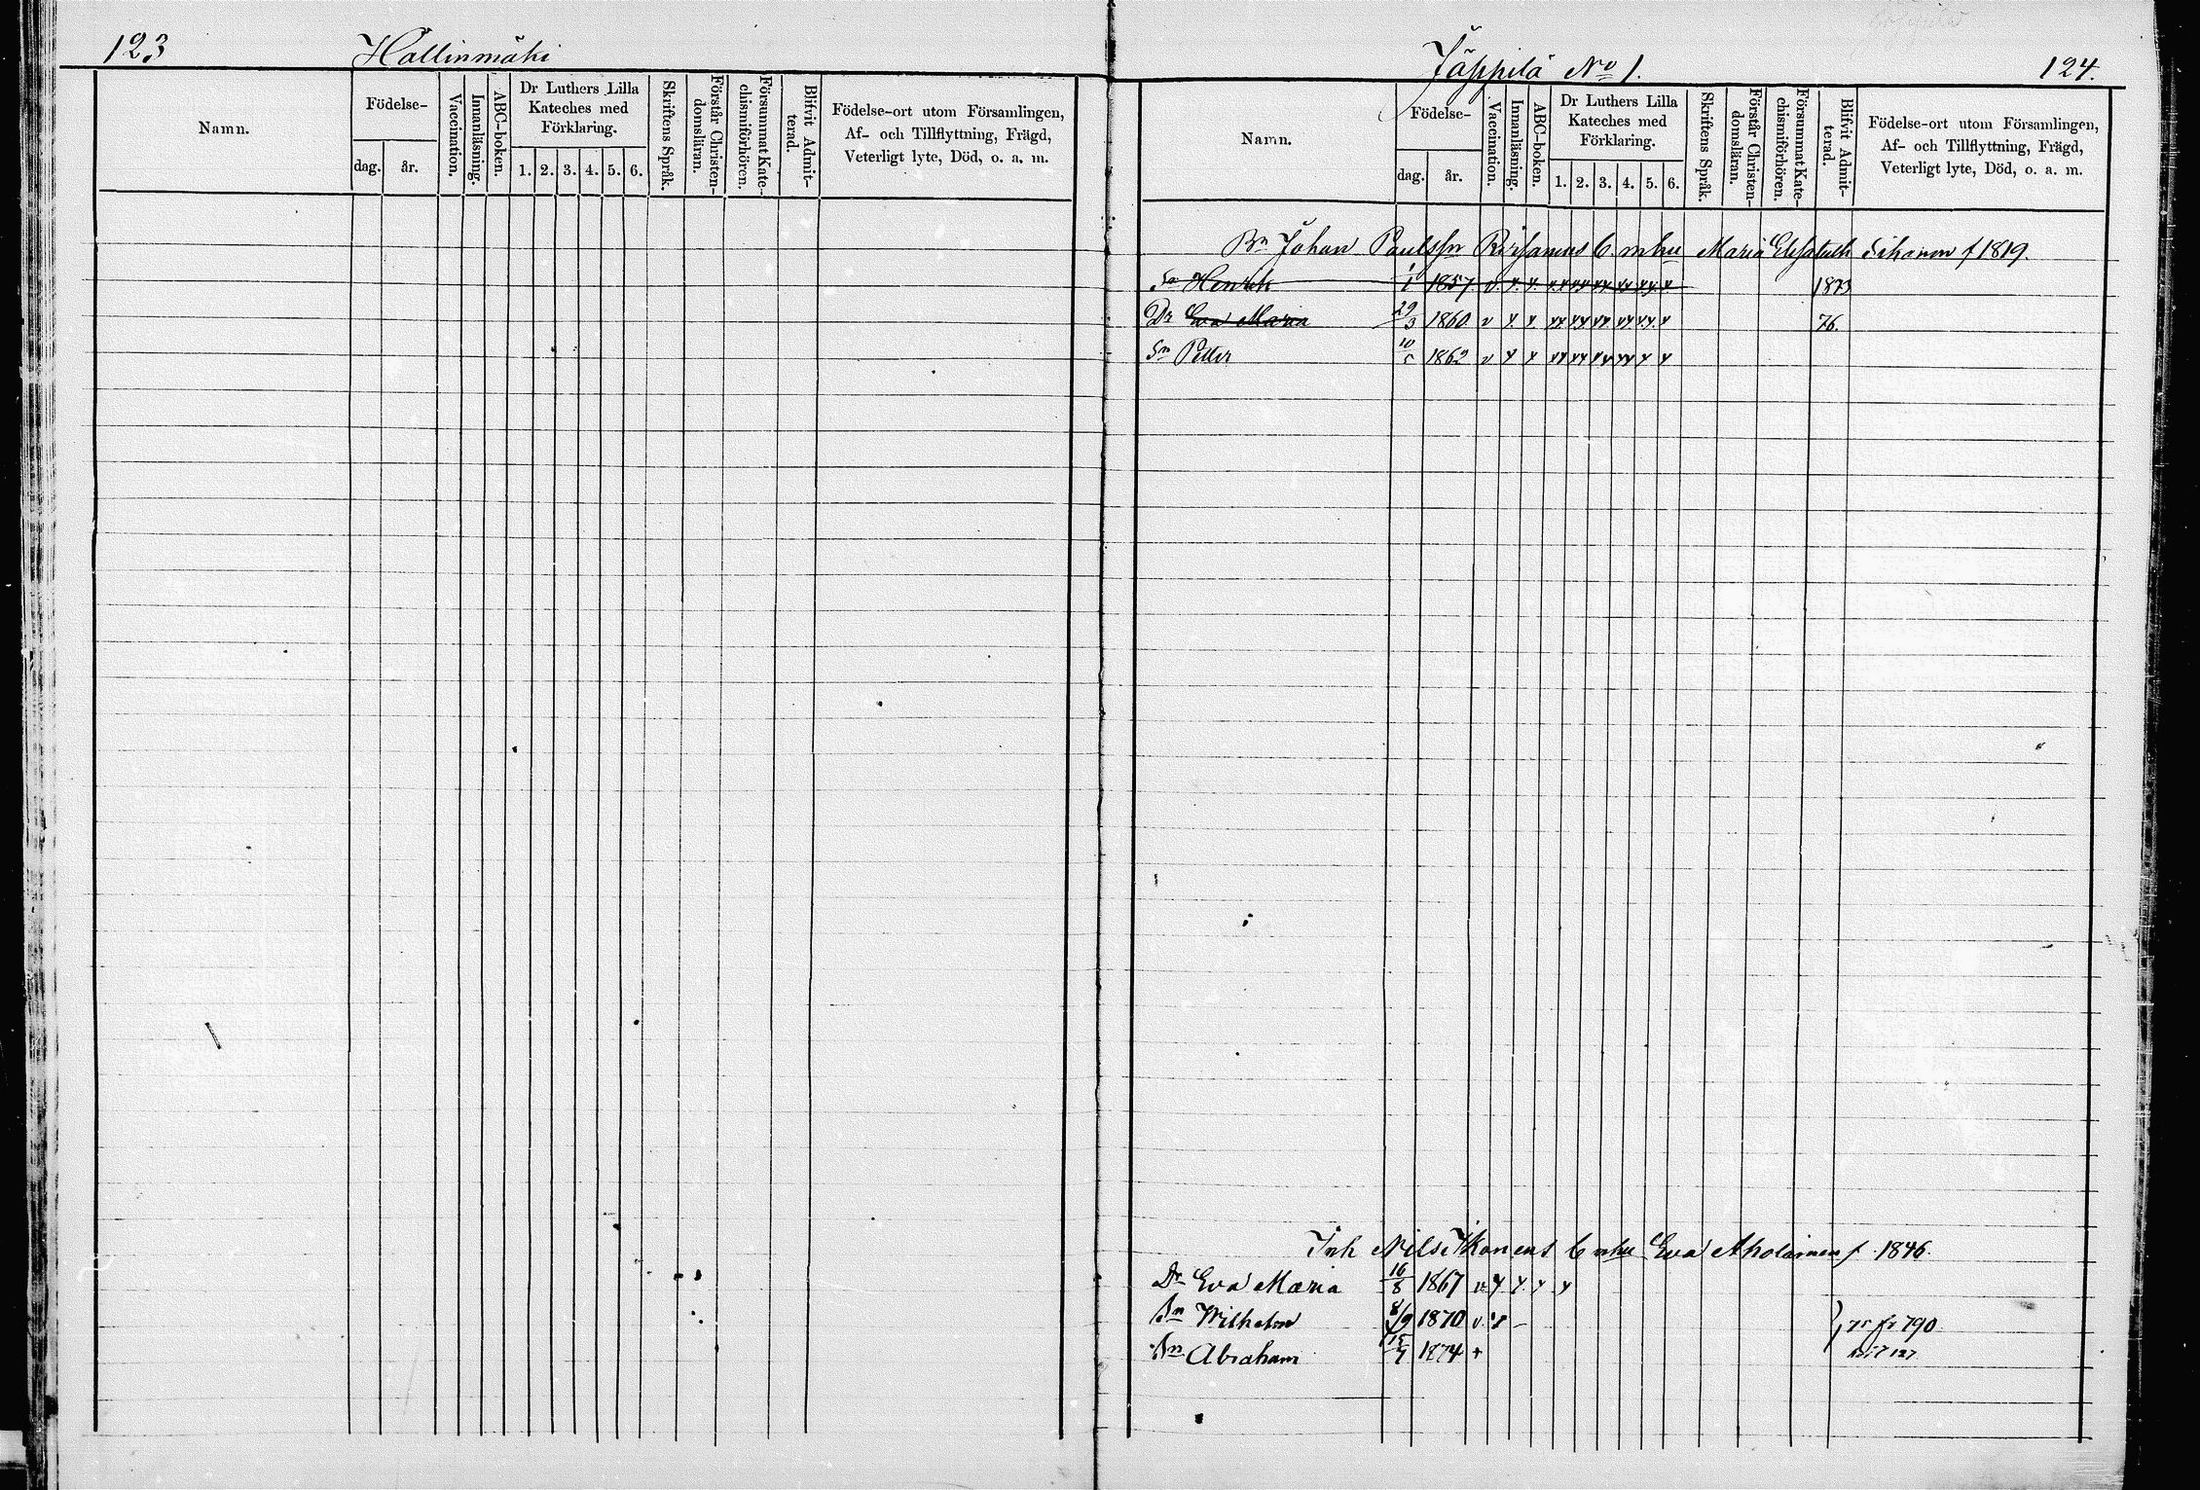 123 Hallinmäki
Namn. Födelse- dag. år. Vaccination. Innanläsning. ABC-boken. Dr Luthers Lilla Kateches med Förklaring. 1. 2. 3. 4. 5. 6. Skriftens Språk. Förstår Christendomsläran. Försummat Katechismiförhören. Blifvit Admitterad. Födelse-ort utom Församlingen, Af- och Tillflyttning, Frägd, Veterligt lyte, Död, o. a. m.
Jäppilä No 1. 124.
Namn. Födelse- dag. år. Vaccination. Innanläsning. ABC-boken. Dr Luthers Lilla Kateches med Förklaring. 1. 2. 3. 4. 5. 6. Skriftens Språk. Förstår Christendomsläran. Försummat Katechismiförhören. Blifvit Admitterad. Födelse-ort utom Församlingen, Af- och Tillflyttning, Frägd, Veterligt lyte, Död, o. a. m.
Bn Johan Paulssn mhu Maria Elisabeth f 1819.
Sn Henrik 1/1 1857 v 1873
Dr Eva Maria 29/3 1860 v 76.
Sn Petter 10/5 1862 v
Inh Nils Ikonens mhu Eva Aholainen f. 1846.
Dr Eva Maria 16/8 1867 v
Sn Wilhelm 8/9 1870 v
Sn Abraham 15/7 1874 +
75 fr 790